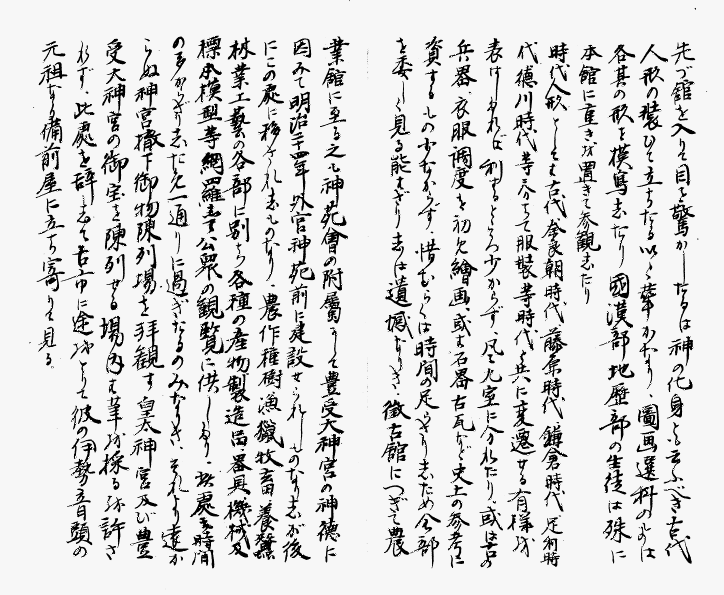 先づ館を入りて目を驚かしたるは神の化身とも云ふべき古代
人形の装ひて立ちたる以て華かなり、圖画選科のものは
各其の形を模寫志たり國漢部地歴部の生徒は殊に
本館に重きを置きて参観志たり
時代人形としては古代奈良朝時代藤原時代鎌倉時代足利時
代徳川時代等分ちて服装等時代と共に変遷せる有様を
表はしあれば利するところ少からず、尚九室に分れたり、或は古の
兵器衣服調度を初め繪画、或は石器古瓦など史上の参考に
資するもの少なからず、惜むらくは時間の足らざり志ため全部
を委しく見る能はざり志は遺憾なりき、徴古館につぎて農
業館に至る之も神苑會の附属にして豊受大神宮の神徳に
因みて明治二十四年外宮神苑前に建設せられしものなり志が後
にこの處に移され志ものなり、農作種樹漁獵牧畜養蠶
林業工藝の各部に別ち各種の産物製造品器具機械及
標本模型等網羅志て公衆の観覧に供しあり、此處も時間
の多からざり志ため一通りに過ぎたるのみなりき、それより遠か
らぬ神宮撤下御物陳列場を拝観す皇太神宮及び豊
受大神宮の御宝を陳列せる場内は筆を採るを許さ
れず、此處を辞志て古市に途をとりて彼の伊勢音頭の
元祖なる備前屋に立ち寄りて見る。